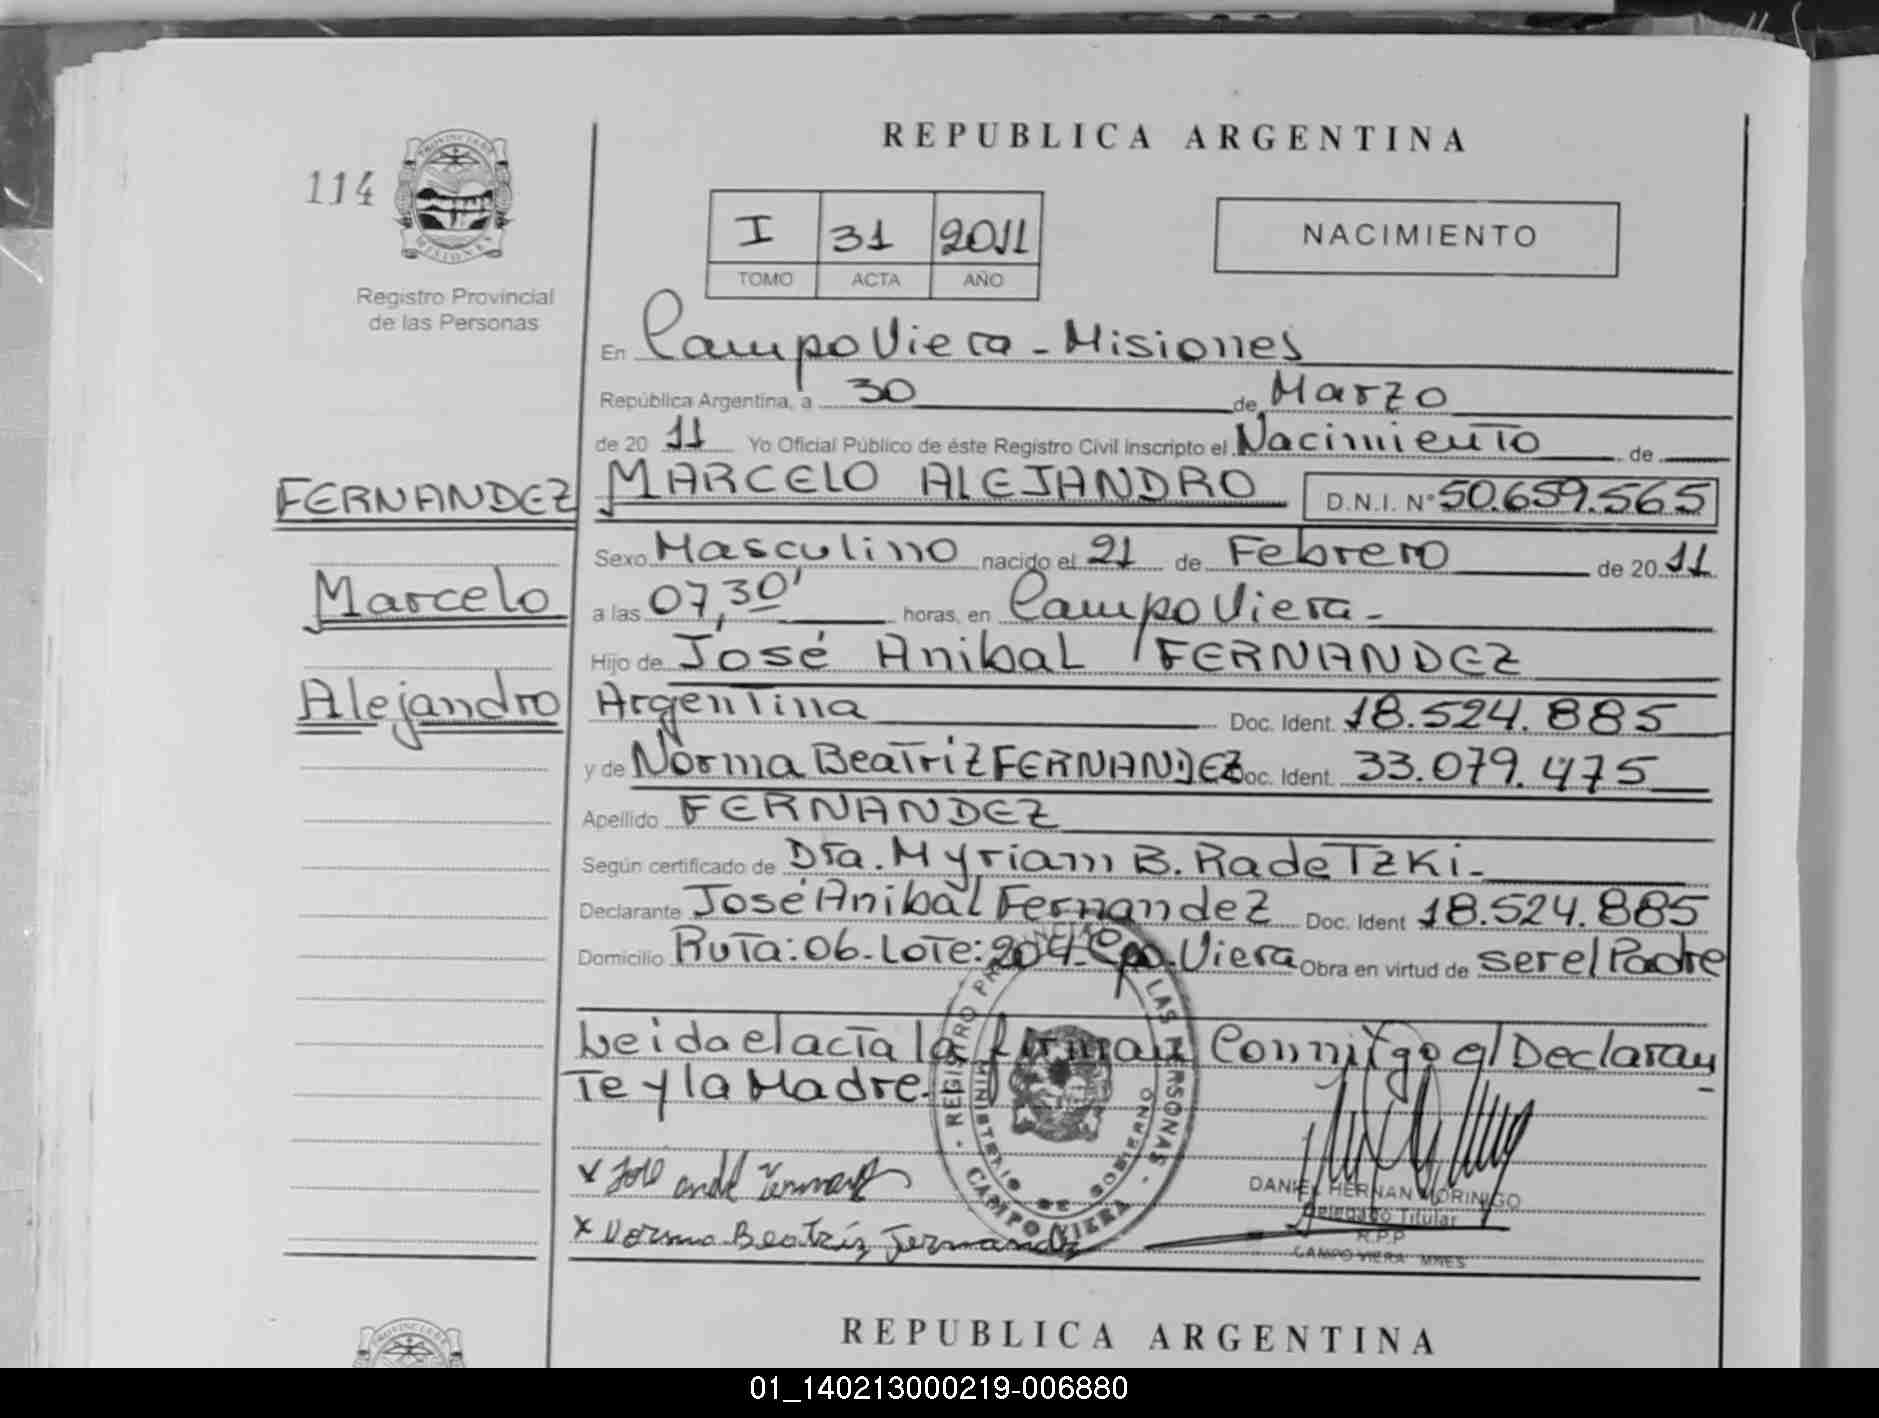 REPUBLICA ARGENTINA
114
I 31 2011
TOMO ACTA AÑO
NACIMIENTO
PROVINCIA DE
MISIONES
Registro Provincial
de las Personas
En Campo Viera - Misiones
República Argentina, a 30 de Marzo
de 20 11 Yo Oficial Público de éste Registro Civil Inscripto el Nacimiento de
FERNANDEZ
Marcelo
Alejandro
MARCELO ALEJANDRO D.N.I. N° 50.659.565
Sexo Masculino nacido el 21 de Febrero de 20 11
a las 07,30' horas, en Campo Viera -
Hijo de José Anibal FERNANDEZ
Argentina Doc. Ident. 18.524.885
y de Norma Beatriz FERNANDEZ Doc. Ident. 33.079.475
Apellido FERNANDEZ
Según certificado de Dra. Myriam B. Radetzki -
Declarante José Anibal Fernandez Doc. Ident 18.524.885
Domicilio Ruta: 06 - Lote: 204 - Cpo. Viera Obra en virtud de ser el Padre
Leida el acta la firman Conmigo el Declaran
te y la Madre.
REGISTRO PROVINCIAL DE LAS PERSONAS
MINISTERIO DE GOBIERNO
CAMPO VIERA
x Norma Beatriz Fernandez
DANIEL HERNAN MORINIGO
Delegado Titular
R.P.P
CAMPO VIERA MNES
REPUBLICA ARGENTINA
01_140213000219-006880